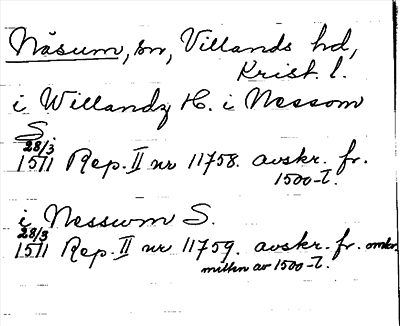 Näsum, sn, Villands hd,
Krist. l.
i Willandz H. i Nessom
S.
28/3
1511 Rep. II nr 11758. avskr. fr.
1500-t.
i Nesswm S.
28/3
1511 Rep. II nr 11759. avskr. fr. omkr.
mitten av 1500-t.